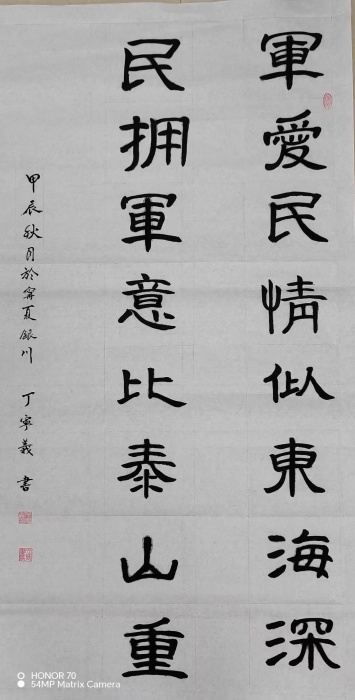 軍愛民情似東海深
民拥軍意比泰山重
甲辰秋月於寧夏銀川 丁寧義 書
HONOR 70
54MP Matrix Camera